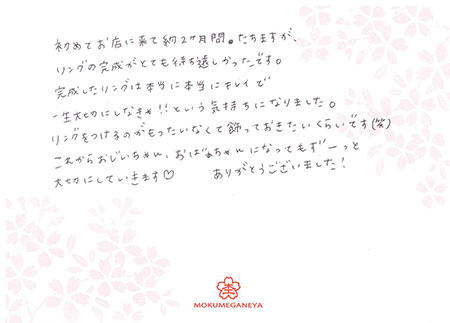 初めてお店に来て約2ヶ月間。たちますが、
リングの完成がとても待ち遠しかったです。
完成したリングは本当に本当にキレイで
一生大切にしなきゃ!!という気持ちになりました。
リングをつけるのがもったいなくて飾っておきたいくらいです(笑)
これからおじいちゃん、おばあちゃんになってもずーっと
大切にしていきます♡ ありがとうございました!
MOKUMEGANEYA